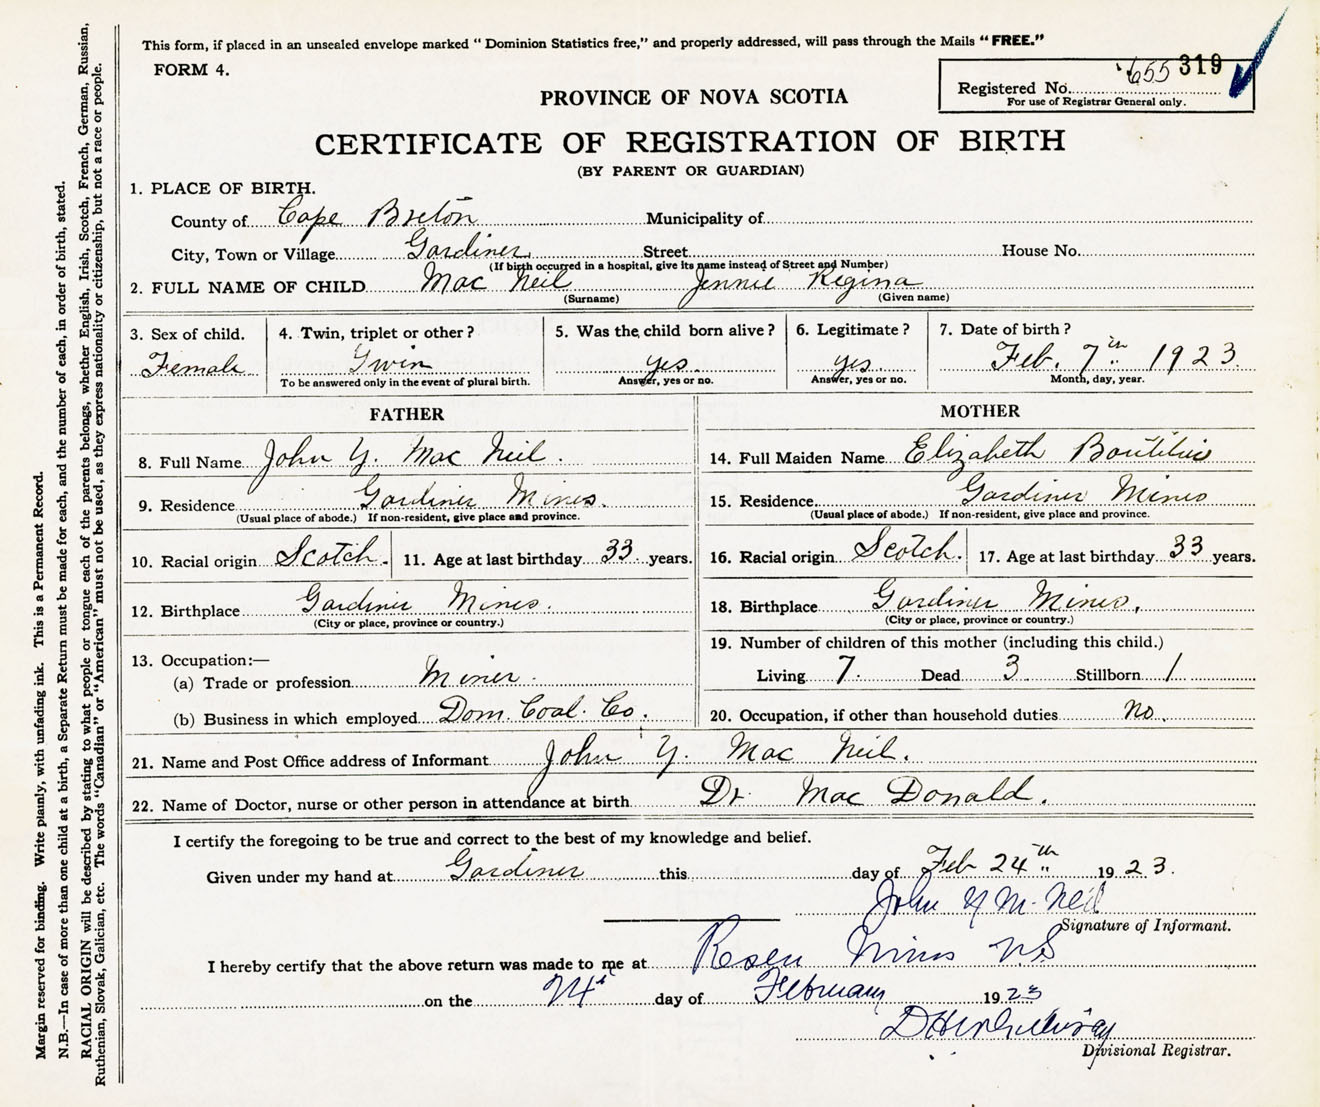 This form, if placed in an unsealed envelope marked “ Dominion Statistics free,” and properly addressed, will pass through the Mails “ FREE.”
FORM 4.
Registered No. 655 319
For use of Registrar General only.
PROVINCE OF NOVA SCOTIA
CERTIFICATE OF REGISTRATION OF BIRTH
(BY PARENT OR GUARDIAN)
1. PLACE OF BIRTH.
County of Cape Breton Municipality of
City, Town or Village Gardiner Street House No.
(If birth occurred in a hospital, give its name instead of Street and Number)
2. FULL NAME OF CHILD Mac Neil Jennie Regina
(Surname) (Given name)
3. Sex of child. 4. Twin, triplet or other? 5. Was the child born alive? 6. Legitimate? 7. Date of birth?
Female Twin yes yes. Feb. 7th 1923.
To be answered only in the event of plural birth. Answer, yes or no. Answer, yes or no. Month, day, year.
FATHER
8. Full Name John Y. Mac Neil.
9. Residence Gardiner Mines.
(Usual place of abode.) If non-resident, give place and province.
10. Racial origin Scotch. 11. Age at last birthday 33 years.
12. Birthplace Gardiner Mines.
(City or place, province or country.)
13. Occupation:—
(a) Trade or profession Miner.
(b) Business in which employed Dom. Coal. Co.
MOTHER
14. Full Maiden Name Elizabeth Boutilier
15. Residence Gardiner Mines
(Usual place of abode.) If non-resident, give place and province.
16. Racial origin Scotch. 17. Age at last birthday 33 years.
18. Birthplace Gardiner Mines.
(City or place, province or country.)
19. Number of children of this mother (including this child.)
Living 7. Dead 3 Stillborn 1
20. Occupation, if other than household duties no.
21. Name and Post Office address of Informant John Y. Mac Neil.
22. Name of Doctor, nurse or other person in attendance at birth Dr. Mac Donald.
I certify the foregoing to be true and correct to the best of my knowledge and belief.
Given under my hand at Gardiner this day of Feb 24th 1923.
John Y McNeil
Signature of Informant.
I hereby certify that the above return was made to me at Mines N.S
on the 24th day of February 1923
Divisional Registrar.
Margin reserved for binding. Write plainly, with unfading ink. This is a Permanent Record.
N.B.—In case of more than one child at a birth, a Separate Return must be made for each, and the number of each, in order of birth, stated.
RACIAL ORIGIN will be described by stating to what people or tongue each of the parents belongs, whether English, Irish, Scotch, French, German, Russian,
Ruthenian, Slovak, Galician, etc. The words “Canadian” or “American” must not be used, as they express nationality or citizenship, but not a race or people.